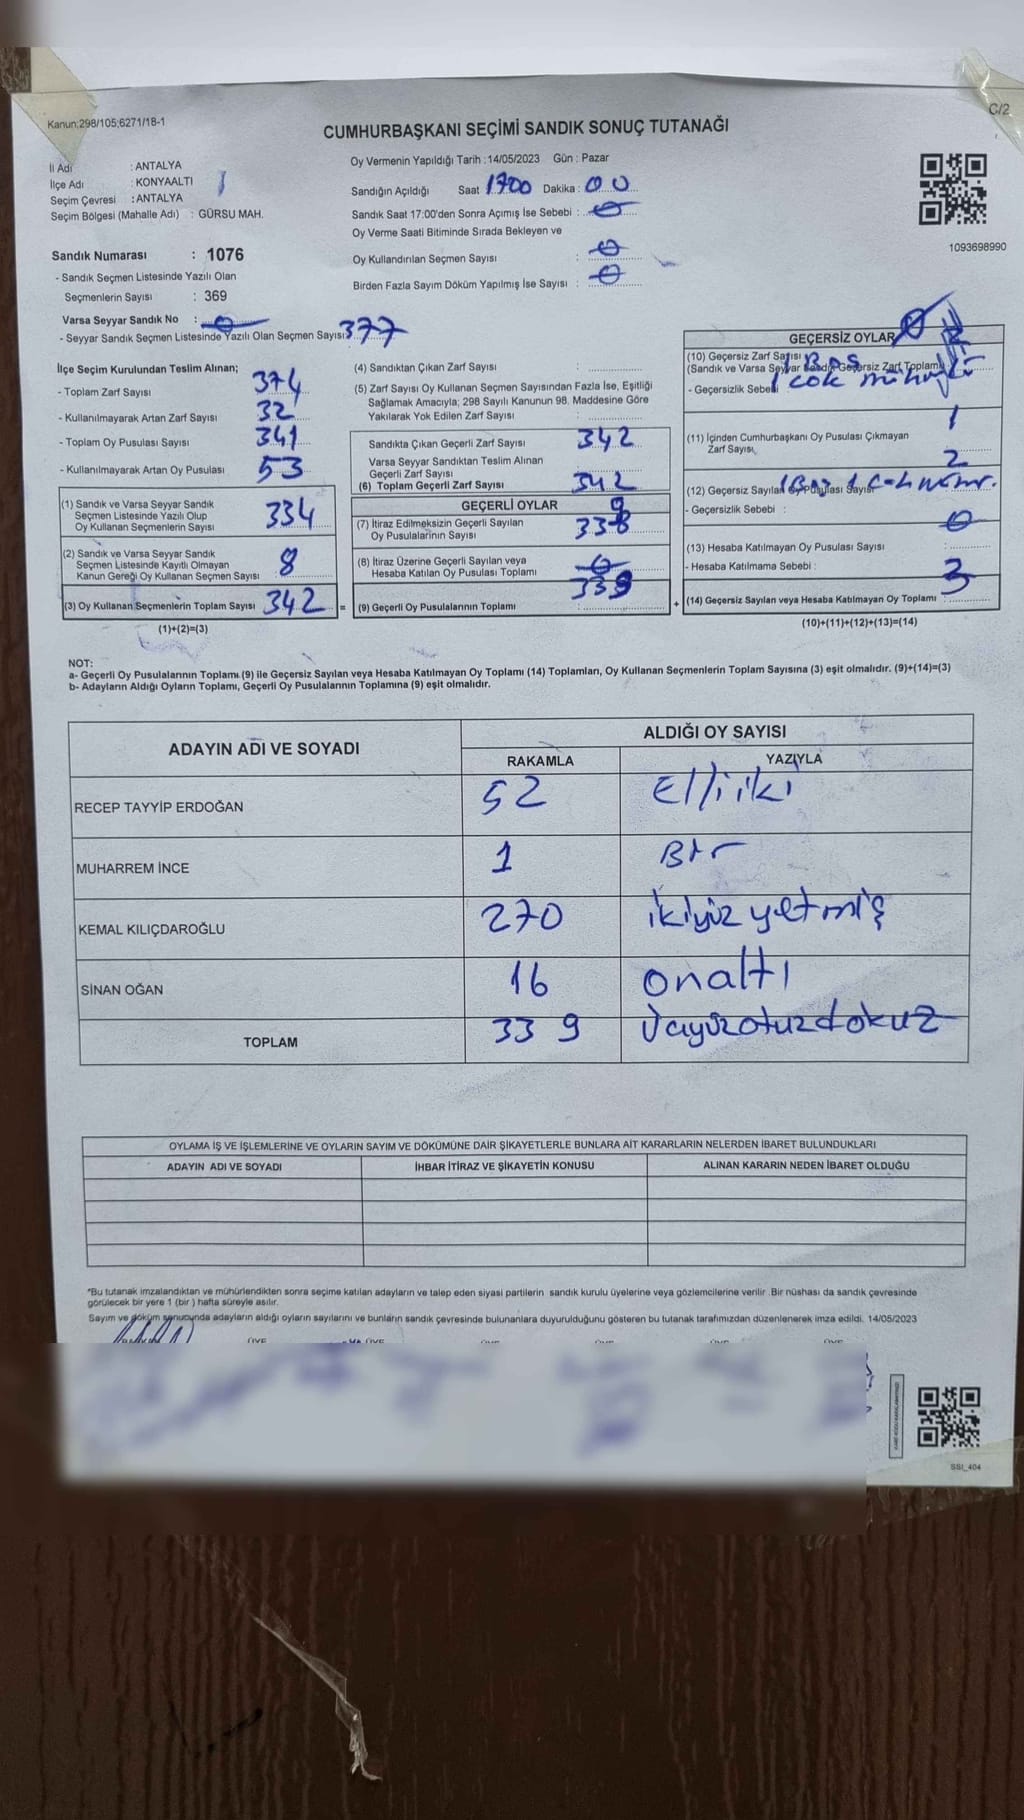 C/2
Kanun:298/105;6271/18-1
CUMHURBAŞKANI SEÇİMİ SANDIK SONUÇ TUTANAĞI
İl Adı : ANTALYA
İlçe Adı : KONYAALTI
Seçim Çevresi : ANTALYA
Seçim Bölgesi (Mahalle Adı) : GÜRSU MAH.
Sandık Numarası : 1076
- Sandık Seçmen Listesinde Yazılı Olan
Seçmenlerin Sayısı : 369
Varsa Seyyar Sandık No : 0
- Seyyar Sandık Seçmen Listesinde Yazılı Olan Seçmen Sayısı 377
Oy Vermenin Yapıldığı Tarih :14/05/2023 Gün : Pazar
Sandığın Açıldığı Saat 1700 Dakika : 00
Sandık Saat 17:00'den Sonra Açımış İse Sebebi : 0
Oy Verme Saati Bitiminde Sırada Bekleyen ve
Oy Kullandırılan Seçmen Sayısı : 0
Birden Fazla Sayım Döküm Yapılmış İse Sayısı : 0
1093698990
İlçe Seçim Kurulundan Teslim Alınan;
- Toplam Zarf Sayısı 374
- Kullanılmayarak Artan Zarf Sayısı 32
- Toplam Oy Pusulası Sayısı 341
- Kullanılmayarak Artan Oy Pusulası 53
(1) Sandık ve Varsa Seyyar Sandık
Seçmen Listesinde Yazılı Olup
Oy Kullanan Seçmenlerin Sayısı 334
(2) Sandık ve Varsa Seyyar Sandık
Seçmen Listesinde Kayıtlı Olmayan
Kanun Gereği Oy Kullanan Seçmen Sayısı 8
(3) Oy Kullanan Seçmenlerin Toplam Sayısı 342 =
(1)+(2)=(3)
(4) Sandıktan Çıkan Zarf Sayısı :
(5) Zarf Sayısı Oy Kullanan Seçmen Sayısından Fazla İse, Eşitliği
Sağlamak Amacıyla; 298 Sayılı Kanunun 98. Maddesine Göre
Yakılarak Yok Edilen Zarf Sayısı :
Sandıkta Çıkan Geçerli Zarf Sayısı 342
Varsa Seyyar Sandıktan Teslim Alınan
Geçerli Zarf Sayısı
(6) Toplam Geçerli Zarf Sayısı 342
GEÇERLİ OYLAR
(7) İtiraz Edilmeksizin Geçerli Sayılan
Oy Pusulalarının Sayısı 339
(8) İtiraz Üzerine Geçerli Sayılan veya
Hesaba Katılan Oy Pusulası Toplamı 0
(9) Geçerli Oy Pusulalarının Toplamı 339 +
GEÇERSİZ OYLAR 0
(10) Geçersiz Zarf Sayısı
(Sandık ve Varsa Seyyar Sandık Geçersiz Zarf Toplamı)
- Geçersizlik Sebebi
1 Boş
1 çok mühürlü
(11) İçinden Cumhurbaşkanı Oy Pusulası Çıkmayan
Zarf Sayısı 1
(12) Geçersiz Sayılan Oy Pusulası Sayısı 2
- Geçersizlik Sebebi :
(13) Hesaba Katılmayan Oy Pusulası Sayısı 0
- Hesaba Katılmama Sebebi :
(14) Geçersiz Sayılan veya Hesaba Katılmayan Oy Toplamı : 3
(10)+(11)+(12)+(13)=(14)
NOT:
a- Geçerli Oy Pusulalarının Toplamı (9) ile Geçersiz Sayılan veya Hesaba Katılmayan Oy Toplamı (14) Toplamları, Oy Kullanan Seçmenlerin Toplam Sayısına (3) eşit olmalıdır. (9)+(14)=(3)
b- Adayların Aldığı Oyların Toplamı, Geçerli Oy Pusulalarının Toplamına (9) eşit olmalıdır.
ADAYIN ADI VE SOYADI ALDIĞI OY SAYISI
RAKAMLA YAZIYLA
RECEP TAYYİP ERDOĞAN 52 Elliiki
MUHARREM İNCE 1 Bir
KEMAL KILIÇDAROĞLU 270 ikiyüz yetmiş
SİNAN OĞAN 16 onaltı
TOPLAM 339 üçyüzotuzdokuz
OYLAMA İŞ VE İŞLEMLERİNE VE OYLARIN SAYIM VE DÖKÜMÜNE DAİR ŞİKAYETLERLE BUNLARA AİT KARARLARIN NELERDEN İBARET BULUNDUKLARI
ADAYIN ADI VE SOYADI İHBAR İTİRAZ VE ŞİKAYETİN KONUSU ALINAN KARARIN NEDEN İBARET OLDUĞU
*Bu tutanak imzalandıktan ve mühürlendikten sonra seçime katılan adayların ve talep eden siyasi partilerin sandık kurulu üyelerine veya gözlemcilerine verilir. Bir nüshası da sandık çevresinde
görülecek bir yere 1 (bir ) hafta süreyle asılır.
Sayım ve döküm sonucunda adayların aldığı oyların sayılarını ve bunların sandık çevresinde bulunanlara duyurulduğunu gösteren bu tutanak tarafımızdan düzenlenerek imza edildi. 14/05/2023
SSI_404